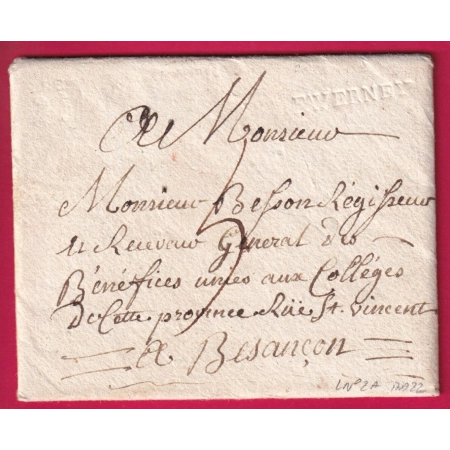 FAVERNEY
A Monsieur
Monsieur Besson Régisseur
et Receveur Général des
Bénéfices unies aux Colléges
De Cette province Rüe St. Vincent
A Besançon
LN°2A